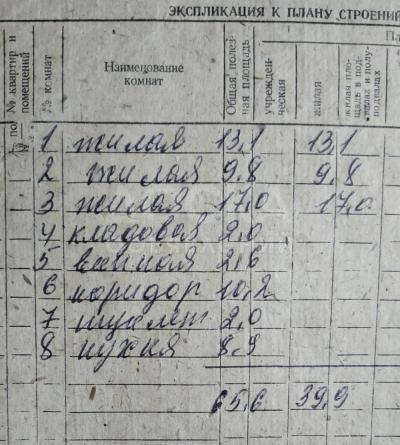 ЭКСПЛИКАЦИЯ К ПЛАНУ СТРОЕНИЙ
№ квартир и помещений
№ комнат
Наименование комнат
Общая полезная площадь
учрежденческая
жилая
жилая площадь в подвалах и полуподвалах
1 жилая 13,1 13,1
2 жилая 9,8 9,8
3 жилая 17,0 17,0
4 кладовая 2,0
5 ванная 2,6
6 коридор 10,2
7 туалет 2,0
8 кухня 8,9
65,6 39,9